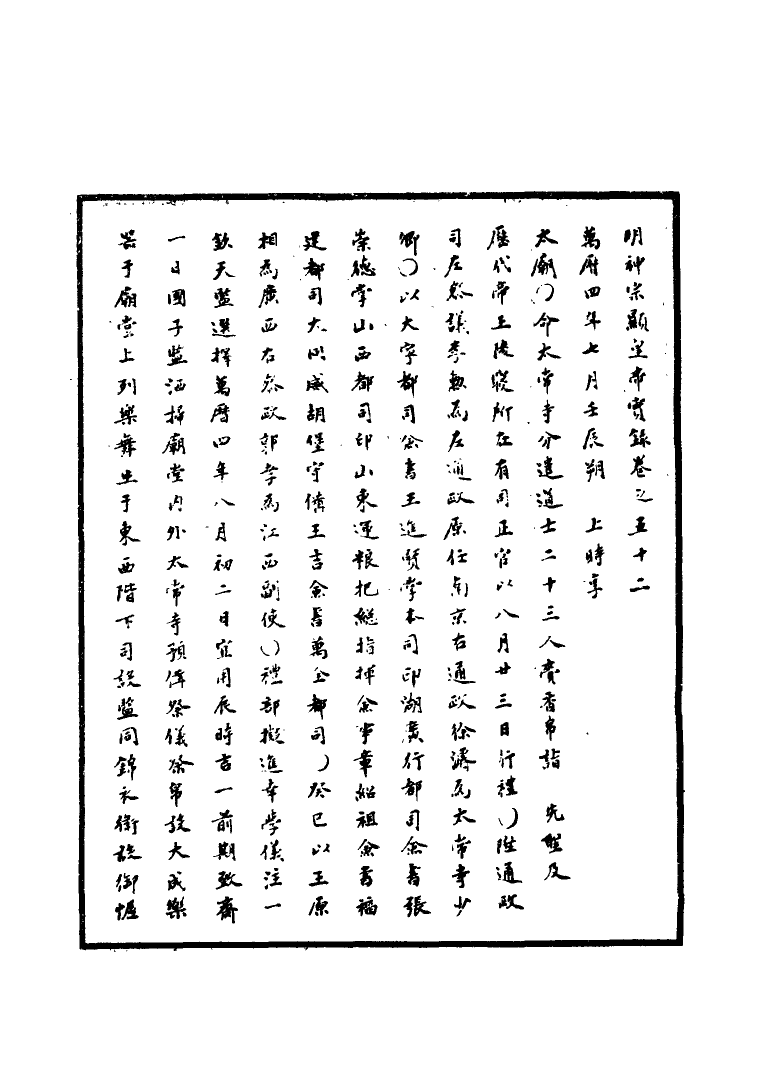 明神宗顯皇帝實錄卷之五十二
萬曆四年七月壬辰朔　上時享
太廟〇命太常寺分遣道士二十三人賷香帛詣　先聖及
歷代帝王陵寢所在有司正官以八月廿三日行禮〇陞通政
司左參議李勲為左通政原任南京右通政徐濤為太常寺少
卿〇以大寧都司僉書王進賢掌本司印湖廣行都司僉書張
崇德掌山西都司印山東運粮把總指揮僉事章紹祖僉書福
建都司大同威胡堡守備王吉僉書萬全都司〇癸巳以王原
相為廣西右參政郭孝為江西副使〇禮部擬進幸學儀注一
欽天監選擇萬曆四年八月初二日宜用辰時吉一前期致齋
一日國子監洒掃廟堂內外太常寺預俻祭儀祭帛設大成樂
器于廟堂上列樂舞生于東西階下司設監同錦衣衛設御幄